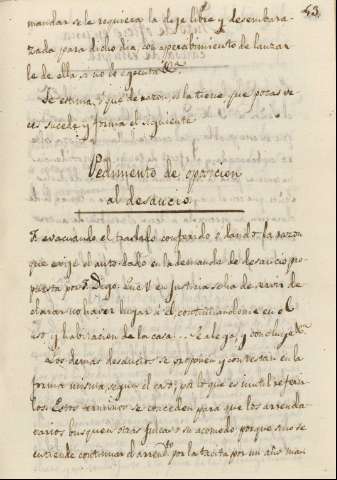 43
mandar se le requiera la deje libre y desembara-
zada para dicho dia, con apercibimiento de lanzar-
le de ella si no lo egecuta &.a
Se estima, y que de razon, si la tiene que pocas ve-
ces sucede y forma el siguiente
Pedimento de oposicion
al desaucio
F. evacuando el traslado conferido o dando la razon
que exige el auto dado en la demanda de desaucio pro-
puesta por F. Digo: Que V. en justicia se ha de servir de
clarar no haver lugar á él continuandome en el
uso y habitacion de la casa... Se alega, y concluye &.a
Los demas desaucios se proponen y contestan en la
forma misma segun el caso; por lo que es inutil referir
los. Estos terminos se conceden para que los arrenda
tarios busquen otras fincas a su acomodo, porque sino se
entiende continuar el arrend.to por la tacita por un año mas